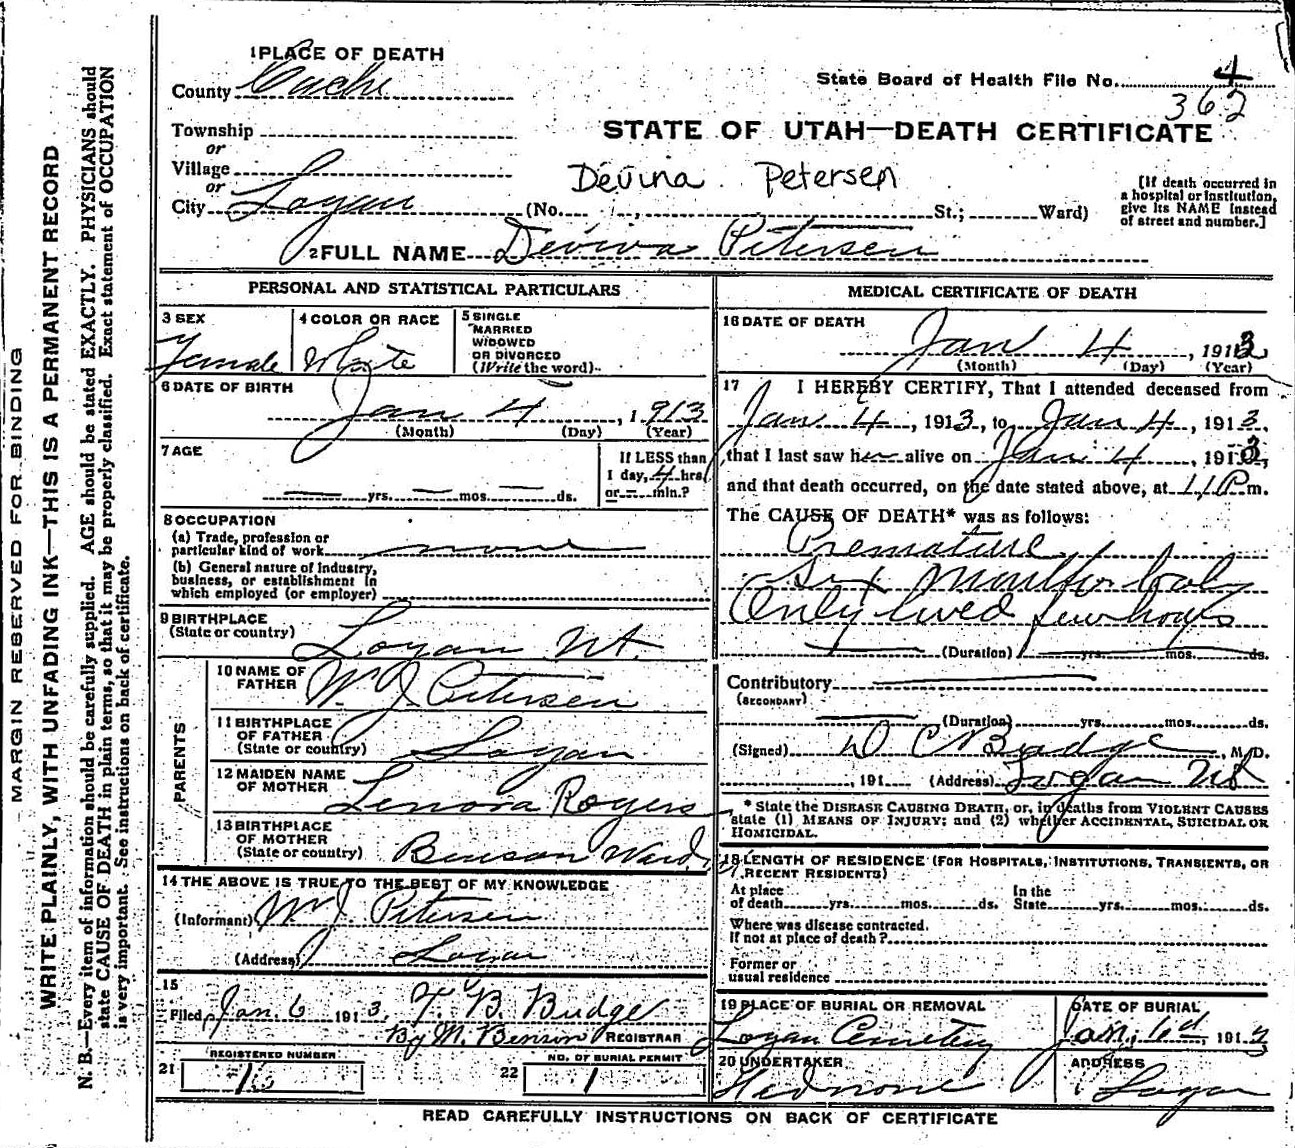 MARGIN RESERVED FOR BINDING
WRITE PLAINLY, WITH UNFADING INK—THIS IS A PERMANENT RECORD
N. B.—Every item of information should be carefully supplied. AGE should be stated EXACTLY. PHYSICIANS should
state CAUSE OF DEATH in plain terms, so that it may be properly classified. Exact statement of OCCUPATION
is very important. See instructions on back of certificate.
1 PLACE OF DEATH
County Cache
State Board of Health File No. 4
362
Township
or
Village
or
City Logan
STATE OF UTAH—DEATH CERTIFICATE
Devina Petersen
(No. St.; Ward)
[If death occurred in
a hospital or institution,
give its NAME instead
of street and number.]
2 FULL NAME Devina Petersen
PERSONAL AND STATISTICAL PARTICULARS
3 SEX
Female
4 COLOR OR RACE
White
5 SINGLE
MARRIED
WIDOWED
OR DIVORCED
(Write the word)
6 DATE OF BIRTH
Jan 4, 1913
(Month) (Day) (Year)
7 AGE
yrs. mos. ds.
If LESS than
1 day, 4 hrs.
or — min.?
8 OCCUPATION
(a) Trade, profession or
particular kind of work none
(b) General nature of industry,
business, or establishment in
which employed (or employer)
9 BIRTHPLACE
(State or country) Logan Ut.
PARENTS
10 NAME OF
FATHER W. J. Petersen
11 BIRTHPLACE
OF FATHER
(State or country) Logan
12 MAIDEN NAME
OF MOTHER Lenora Rogers
13 BIRTHPLACE
OF MOTHER
(State or country) Benson Ward
14 THE ABOVE IS TRUE TO THE BEST OF MY KNOWLEDGE
(Informant) W J. Petersen
(Address) Logan
15
Filed Jan. 6 1913, T. B. Budge
By M. Benson REGISTRAR
21 REGISTERED NUMBER
22 NO. OF BURIAL PERMIT
1
MEDICAL CERTIFICATE OF DEATH
16 DATE OF DEATH
Jan 4, 1913
(Month) (Day) (Year)
17 I HEREBY CERTIFY, That I attended deceased from
Jan 4, 1913, to Jan 4, 1913,
that I last saw her alive on Jan 4, 1913,
and that death occurred, on the date stated above, at 11 P m.
The CAUSE OF DEATH* was as follows:
Premature
Six Months
Only lived few hours
(Duration) yrs. mos. ds.
Contributory
(SECONDARY)
(Duration) yrs. mos. ds.
(Signed) D C Budge, M. D.
, 191 (Address) Logan Ut
* State the DISEASE CAUSING DEATH, or, in deaths from VIOLENT CAUSES
state (1) MEANS OF INJURY; and (2) whether ACCIDENTAL, SUICIDAL OR
HOMICIDAL.
18 LENGTH OF RESIDENCE (FOR HOSPITALS, INSTITUTIONS, TRANSIENTS, OR
RECENT RESIDENTS)
At place
of death yrs. mos. ds.
In the
State yrs. mos. ds.
Where was disease contracted,
if not at place of death?
Former or
usual residence
19 PLACE OF BURIAL OR REMOVAL
Logan Cemetery
DATE OF BURIAL
Jan. 6th, 1913
20 UNDERTAKER
ADDRESS
Logan
READ CAREFULLY INSTRUCTIONS ON BACK OF CERTIFICATE